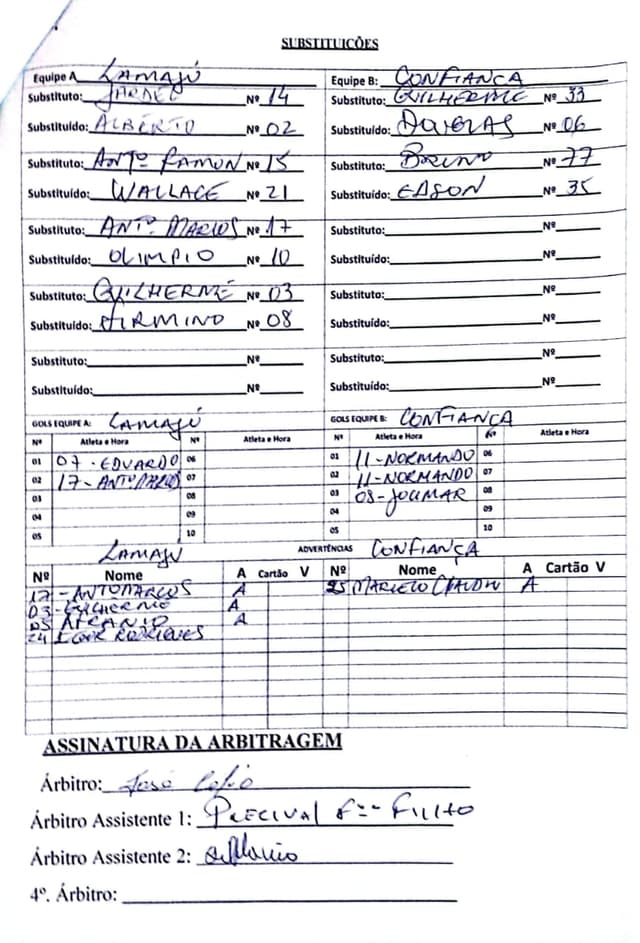 SUBSTITUIÇÕES
Equipe A LAMAJÚ Equipe B: CONFIANCA
Substituto: JARDEL Nº 14 Substituto: GUILHERME Nº 33
Substituído: ALBERTO Nº 02 Substituído: DOUGLAS Nº 06
Substituto: ANTº RAMON Nº 15 Substituto: BRUNO Nº 77
Substituído: WALLACE Nº 21 Substituído: EDSON Nº 35
Substituto: ANTº MARCOS Nº 17 Substituto: Nº
Substituído: OLIMPIO Nº 10 Substituído: Nº
Substituto: GUILHERME Nº 03 Substituto: Nº
Substituído: FIRMINO Nº 08 Substituído: Nº
Substituto: Nº Substituto: Nº
Substituído: Nº Substituído: Nº
GOLS EQUIPE A: LAMAJÚ GOLS EQUIPE B: CONFIANCA
Nº Atleta e Hora Nº Atleta e Hora Nº Atleta e Hora Nº Atleta e Hora
01 07 - EDUARDO 06 01 11-NORMANDO 06
02 17-ANTº MARCOS 07 02 11-NORMANDO 07
03 08 03 08-JOCIMAR 08
04 09 04 09
05 10 05 10
LAMAJU ADVERTÊNCIAS CONFIANÇA
Nº Nome A Cartão V Nº Nome A Cartão V
17 - ANTOMARCOS A 25 MARCELO CLAUDIO A
03 - GUILHERME A
05 AFCANIO A
24 IGOR RODRIGUES
ASSINATURA DA ARBITRAGEM
Árbitro: José
Árbitro Assistente 1: PRECIVAL Fco FILHO
Árbitro Assistente 2:
4º. Árbitro: